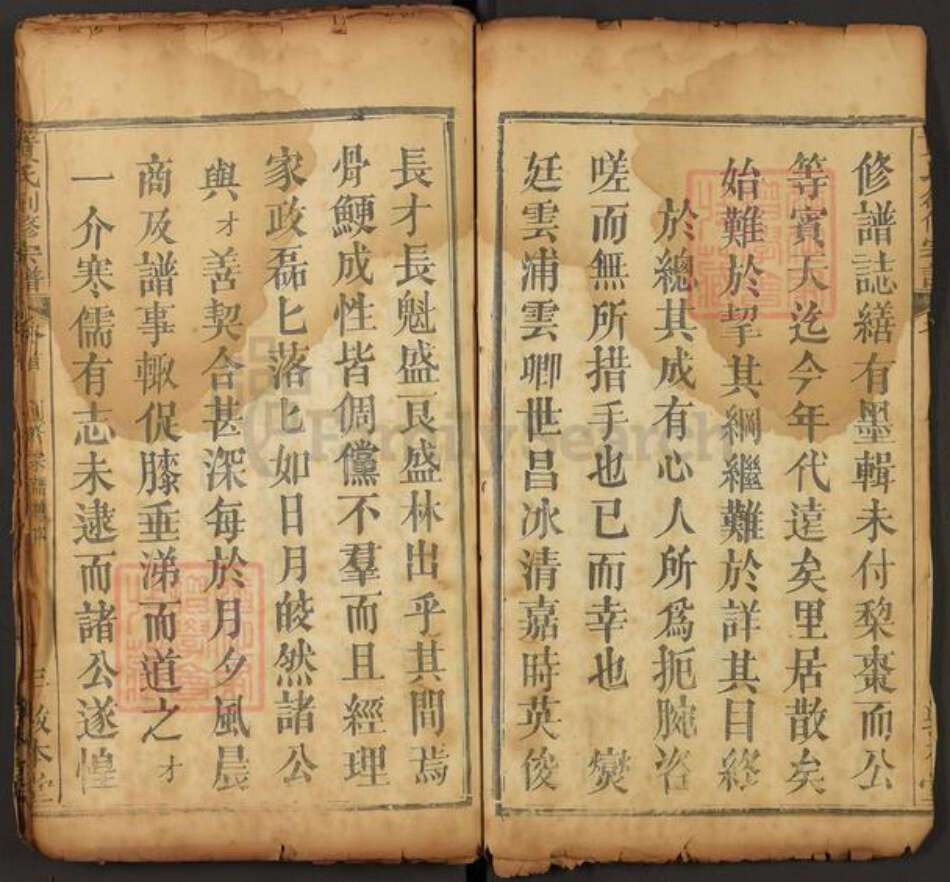 修譜誌繕有墨輯未付棃棗而公
等賓天迄今年代遠矣里居散矣
始難於挈其綱繼難於詳其目終
於總其成有心人所爲扼腕咨
嗟而無所措手也已而幸也 爕
廷雲浦雲卿世昌冰清嘉時英俊
長才長魁盛艮盛林出乎其間焉
骨鯁成性皆倜儻不羣而且經理
家政磊匕落匕如日月皎然諸公
與才善契合甚深每於月夕風晨
商及譜事輙促膝垂涕而道之才
一介寒儒有志未逮而諸公遂惶
氏創修宗譜
敬本堂
FamilySearch